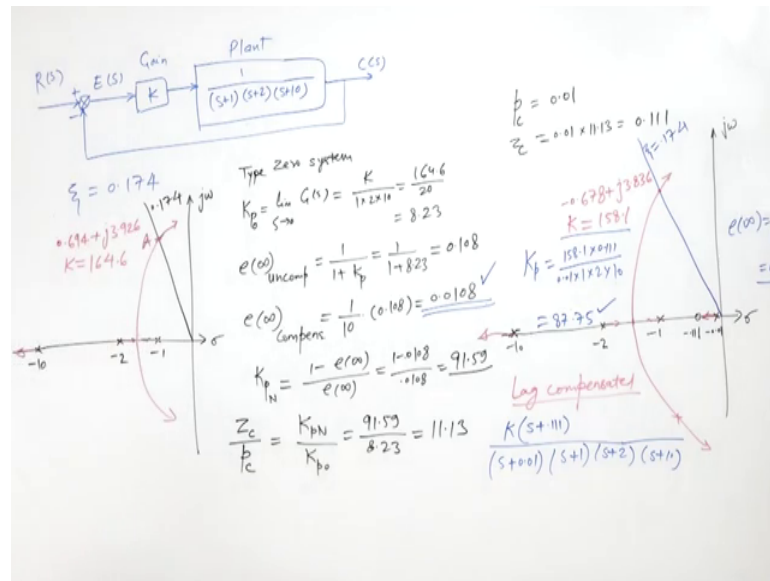 Plant
Gain
R(s) + E(s) K 1/((s+1)(s+2)(s+10)) C(s)
-
ξ = 0.174
0.174 jω
0.694+j3.926
A
K=164.6
-10 -2 -1 σ
Type zero system
Kp₀ = lim s→0 G(s) = K/(1×2×10) = 164.6/20
= 8.23
e(∞) uncomp = 1/(1+Kp) = 1/(1+8.23) = 0.108
e(∞) compens = 1/10 · (0.108) = 0.0108 ✓
KpN = (1-e(∞))/e(∞) = (1-.0108)/.0108 = 91.59
Zc/pc = KpN/Kp₀ = 91.59/8.23 = 11.13
pc = 0.01
zc = 0.01×11.13 = 0.111
ξ=.174 jω
-0.678+j3.836
K=158.1
Kp = (158.1×0.111)/(0.01×1×2×10)
= 87.75 ✓
e(∞)=
=
-10 -2 -1 -.111 -.01 σ
Lag compensated
K(s+.111)/((s+0.01)(s+1)(s+2)(s+10))